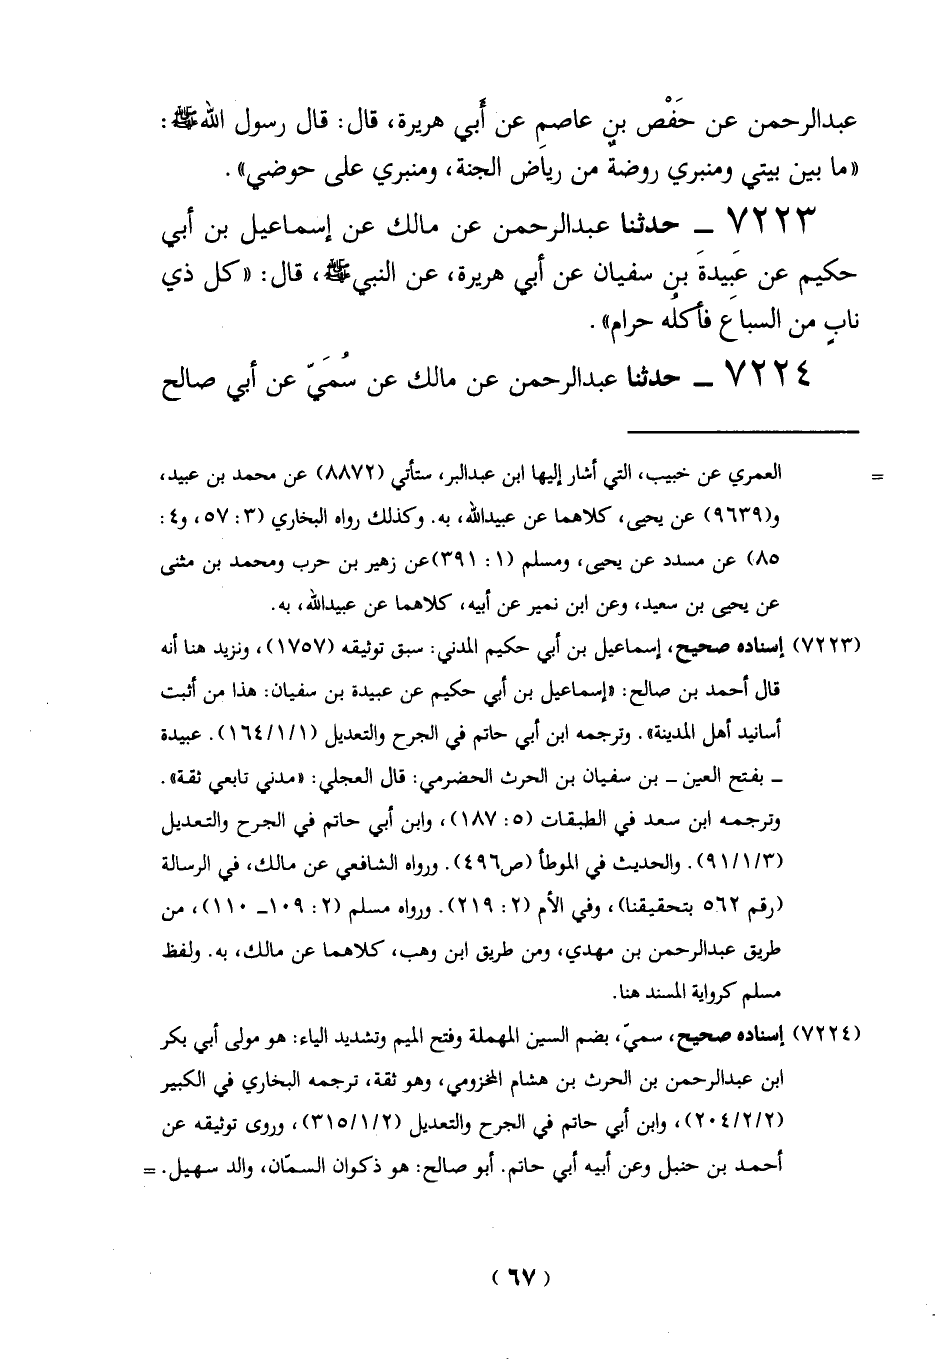 عبدالرحمن عن حَفْص بنِ عاصم عن أَبي هريرة، قال: قال رسول الله ﷺ:
«ما بين بيتي ومنبري روضةٌ من رياض الجنة، ومنبري على حوضي».
٧٢٢٣ ـ حدثنا عبدالرحمن عن مالك عن إسماعيل بن أبي
حكيم عن عَبِيدَةَ بن سفيان عن أبي هريرة، عن النبي ﷺ، قال: «كل ذي
نابٍ من السباعِ فأَكلُه حرام».
٧٢٢٤ ـ حدثنا عبدالرحمن عن مالك عن سُمَيّ عن أبي صالح
= العمري عن خبيب، التي أشار إليها ابن عبدالبر، ستأتي (٨٨٧٢) عن محمد بن عبيد،
و(٩٦٣٩) عن يحيى، كلاهما عن عبيدالله، به. وكذلك رواه البخاري (٣: ٥٧، و٤:
٨٥) عن مسدد عن يحيى، ومسلم (١: ٣٩١)عن زهير بن حرب ومحمد بن مثنى
عن يحيى بن سعيد، وعن ابن نمير عن أبيه، كلاهما عن عبيدالله، به.
(٧٢٢٣) إسناده صحيح، إسماعيل بن أبي حكيم المدني: سبق توثيقه (١٧٥٧)، ونزيد هنا أنه
قال أحمد بن صالح: «إسماعيل بن أبي حكيم عن عبيدة بن سفيان: هذا من أثبت
أسانيد أهل المدينة». وترجمه ابن أبي حاتم في الجرح والتعديل (١٦٤/١/١). عبيدة
ـ بفتح العين ـ بن سفيان بن الحرث الحضرمي: قال العجلي: «مدني تابعي ثقة».
وترجمه ابن سعد في الطبقات (٥: ١٨٧)، وابن أبي حاتم في الجرح والتعديل
(٩١/١/٣). والحديث في الموطأ (ص٤٩٦). ورواه الشافعي عن مالك، في الرسالة
(رقم ٥٦٢ بتحقيقنا)، وفي الأم (٢: ٢١٩). ورواه مسلم (٢: ١٠٩ـ ١١٠)، من
طريق عبدالرحمن بن مهدي، ومن طريق ابن وهب، كلاهما عن مالك، به. ولفظ
مسلم كرواية المسند هنا.
(٧٢٢٤) إسناده صحيح، سميّ، بضم السين المهملة وفتح الميم وتشديد الياء: هو مولى أبي بكر
ابن عبدالرحمن بن الحرث بن هشام المخزومي، وهو ثقة، ترجمه البخاري في الكبير
(٢٠٤/٢/٢)، وابن أبي حاتم في الجرح والتعديل (٣١٥/١/٢)، وروى توثيقه عن
أحمد بن حنبل وعن أبيه أبي حاتم. أبو صالح: هو ذكوان السمّان، والد سهيل. =
(٦٧)